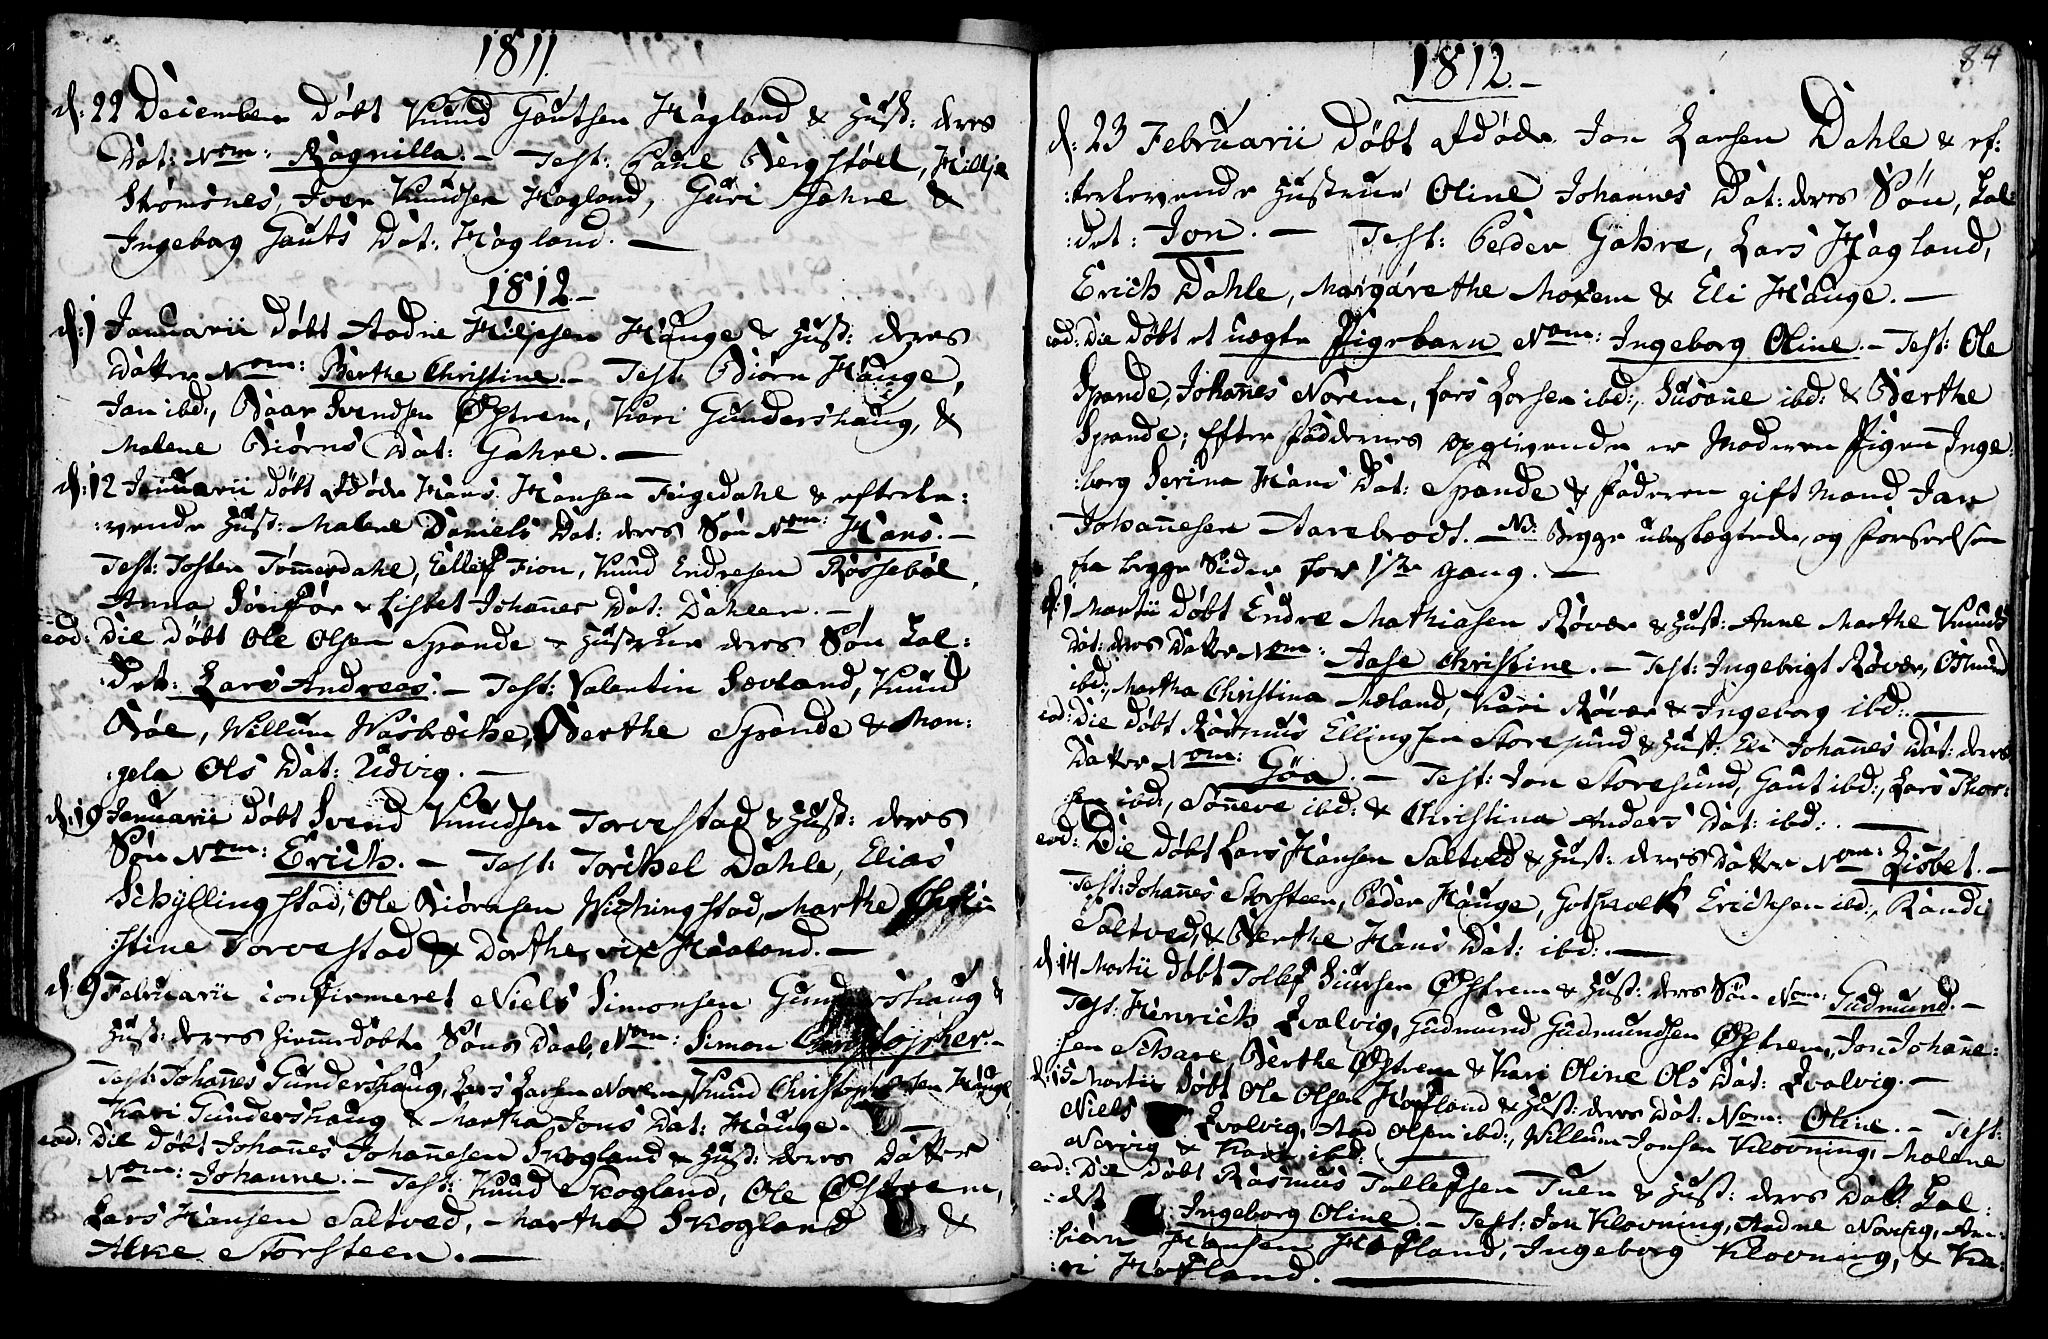 1811.
d: 22 December döbt Knud Gautsen Hagland & Hust: deres
Dat: Nom: Ragnilla. - Test: Paul Bergstöel, Killje
Strömsnes, Iver Knudsen Hagland, Guri Gahre &
Ingeborg Gauts Dat: Hagland. -
1812. -
d: 1 Januarii döbt Aadne Hilje­sen Hauge & Hust: deres
Datter Nom: Berthe Christine. - Test: Biörn Hauge,
Jan ibd:, Baar Svendsen Østrem, Kari Gundershaug, &
Malene Biörns Dat: Gahre. -
d: 12 Januarii döbt afdøde Hans Hansen Tugedahl & efterle:
:vende Hust: Malene Daniels Dat: deres Sön Nom: Hans. -
Test: Josten Tömmerdahl, Ellef Fion, Knud Endresen Røssebøe,
Anna & Lisbet Johannes Dat: Dahlen. -
eod: Die döbt Ole Olsen Spande & Hustrue deres Sön kal:
:det: Lars Andreas. - Test: Valentin Sævland, Knud
Bøe, Willum Wasbrecke, Berthe Spande & Man:
:gela Ols Dat: Udvig. -
d: 19 Januarii döbt Svend Knudsen Torvestad & Hust: deres
Sön Nom: Erich. - Test: Torchel Dahle, Elias
Schyllingstad, Ole Biörnsen Wichingstad, Marthe Chri:
:stine Torvestad & Dorthe Haaland. -
d: 9 Februarii confirmeret Niels Simonsen Gundershaug &
Hust: deres hiemmedöbte Söns Daab, Nom: Simon Christopher. -
Test: Johannes Gundershaug, Lars Larsen Norem, Knud Christophersen Hauge,
Kari Gundershaug & Martha Jons Dat: Hauge. -
eod: Die döbt Johannes Johannesen Skogland & Hust: deres Datter
Nom: Johanne. - Test: Knud Skogland, Ole Østrem,
Lars Hansen Saltved, Martha Skogland &
Alke Storsteen. -
84
1812. -
d: 23 Februarii döbt afdøde Jon Larsen Dahle & ef:
:terlevende Hustrue Oline Johannes Dat: deres Sön, kal:
:det: Jon. - Test: Peder Gahre, Lars Hagland,
Erich Dahle, Margarethe Moxem & Eli Hauge. -
eod: Die döbt et uægte Pigebarn Nom: Ingeborg Oline. - Test: Ole
Spande, Johannes Norem, Lars Larsen ibd:, Susanne ibd: & Berthe
Spande; Efter Faddernes opgivende er Moderen Pigen Inge:
:borg Serina Hans Dat: Spande & Faderen gift Mand Jan
Johannesen Aarebrodt. - NB: Begge ubeslægtede, og Forseelsen
fra begge Sider for 1ste gang. -
d: 1 Martii döbt Endre Mathiasen Røvær & Hust: Anne Marthe Knuds
Dat: deres Datter Nom: Aase Christine. - Test: Ingebrigt Røvær, Osmund
ibd:, Martha Christina Mæland, Kari Røvær & Ingeborg ibd: -
eod: Die döbt Rasmus Ellingsen Storesund & Hust: Eli Johannes Dat: deres
Datter Nom: Gøa. - Test: Jon Storesund, Gaut ibd:, Lars Thor:
:sen ibd:, Sønneve ibd: & Christina Anders Dat: ibd: -
eod: Die döbt Lars Hansen Saltved & Hust: deres Datter Nom: Lisbet. -
Test: Johannes Storsteen, Peder Hauge, Gotskalk Erichsen ibd:, Randi
Saltved, & Berthe Hans Dat: ibd: -
d: 14 Martii döbt Tollef Siursen Østrem & Hust: deres Sön Nom: Gudmund. -
Test: Henrich Qvalvig, Gudmund Gudmundsen Østrem, Jon Johanne:
:sen Schare, Berthe Østrem & Kari Oline Ols Dat: Qvalvig. -
d: 15 Martii döbt Ole Olsen Hofland & Hust: deres Dat: Nom: Oline. - Test:
Niels Qvalvig, Aad Olsen ibd:, Willum Jonsen Klovning, Malene
Norvig & Kari ibd: -
eod: Die döbt Rasmus Tollefsen Tuen & Hust: deres Datt: kal:
:det Ingeborg Oline. - Test: Jon Klovning, Aadne Norvig, An:
:biörn Hansen Hofland, Ingeborg Klovning, & Ka:
:ri Hofland. -